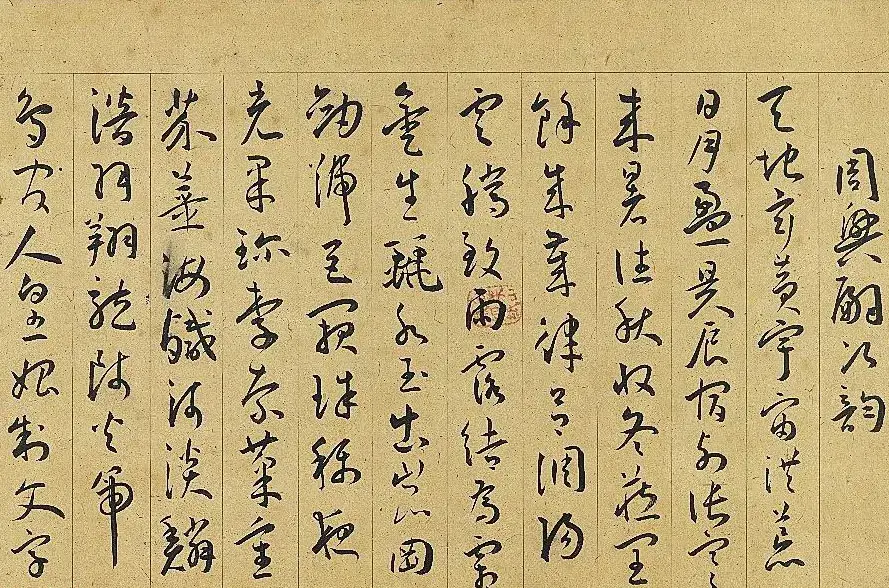 周興嗣次韻
天地玄黃宇宙洪荒
日月盈昃辰宿列張寒
來暑往秋收冬藏閏
餘成歲律呂調陽
雲騰致雨露結為霜
金生麗水玉出崑岡
劍號巨闕珠稱夜
光果珍李柰菜重
芥薑海鹹河淡鱗
潛羽翔龍師火帝
鳥官人皇始制文字